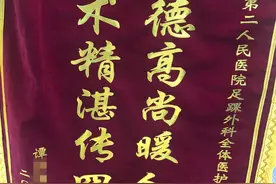 第二人民医院足踝外科全体医护
德高尚暖
术精湛传
谭
二